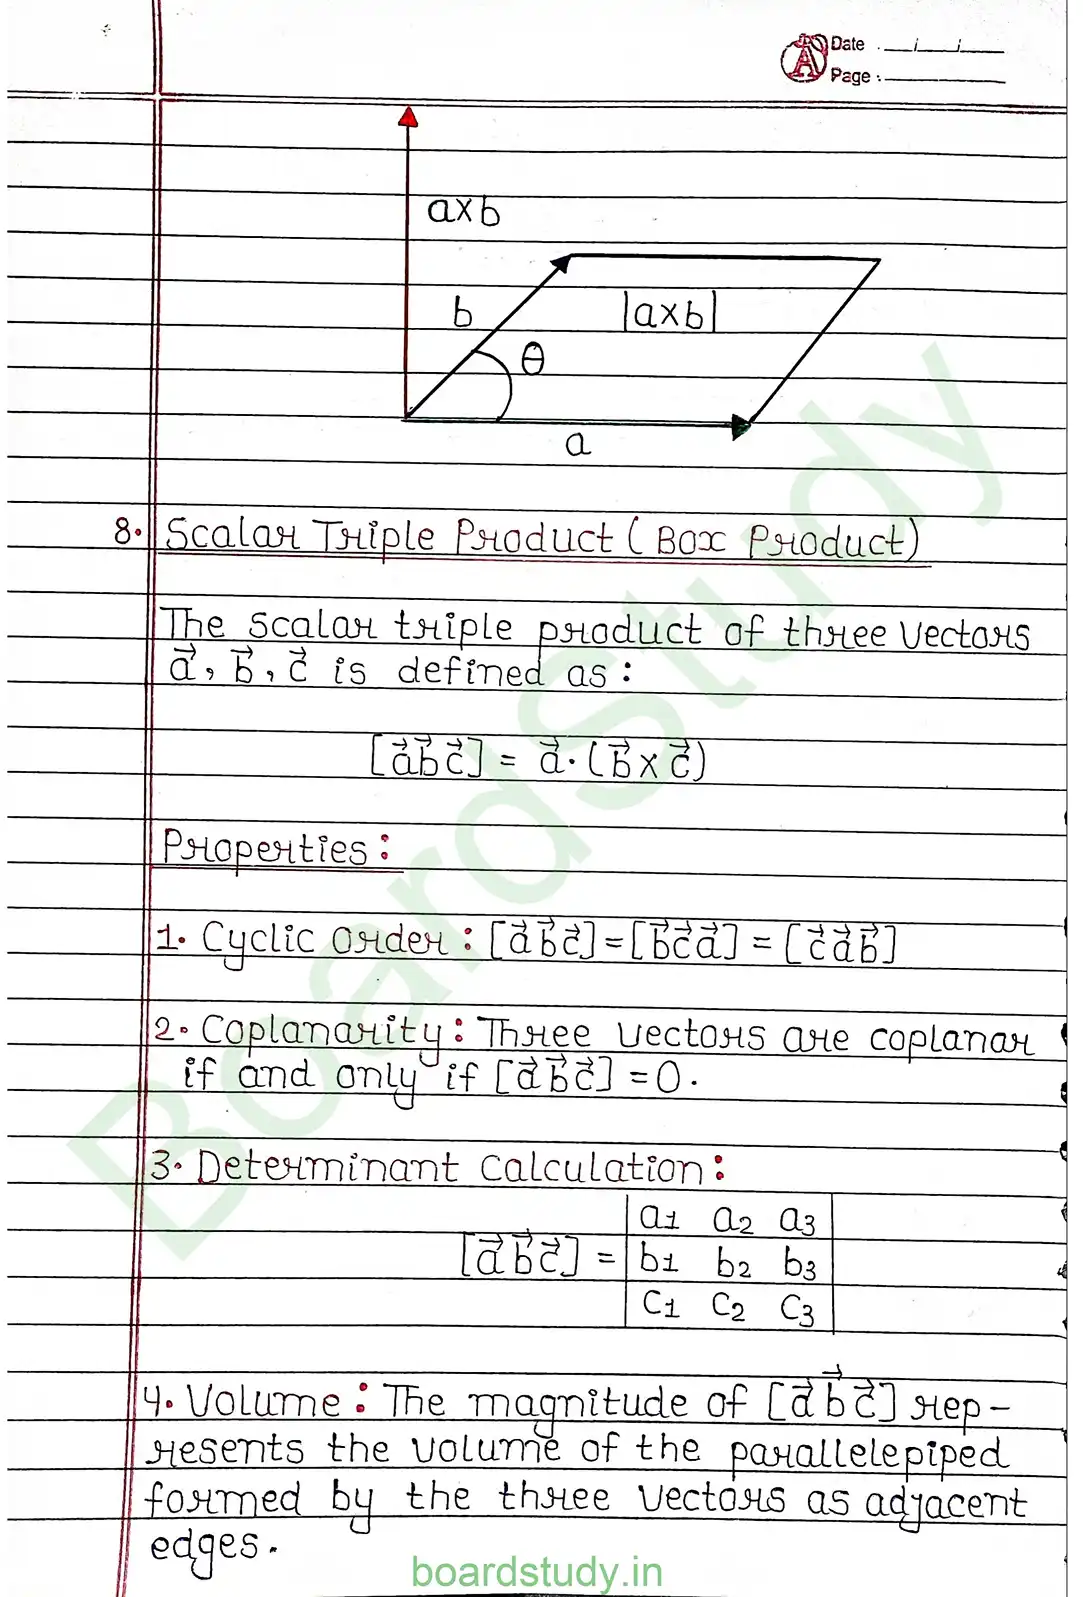 Date : __/__/__
Page :
a×b
b
|a×b|
θ
a
8. Scalar Triple Product (Box Product)
The scalar triple product of three vectors
a⃗, b⃗, c⃗ is defined as:
[a⃗ b⃗ c⃗] = a⃗·(b⃗ × c⃗)
Properties:
1. Cyclic order: [a⃗ b⃗ c⃗] = [b⃗ c⃗ a⃗] = [c⃗ a⃗ b⃗]
2. Coplanarity: Three vectors are coplanar
if and only if [a⃗ b⃗ c⃗] = 0.
3. Determinant calculation:
a1 a2 a3
[a⃗ b⃗ c⃗] = b1 b2 b3
c1 c2 c3
4. Volume: The magnitude of [a⃗ b⃗ c⃗] rep-
resents the volume of the parallelepiped
formed by the three vectors as adjacent
edges.
Boardstudy
boardstudy.in